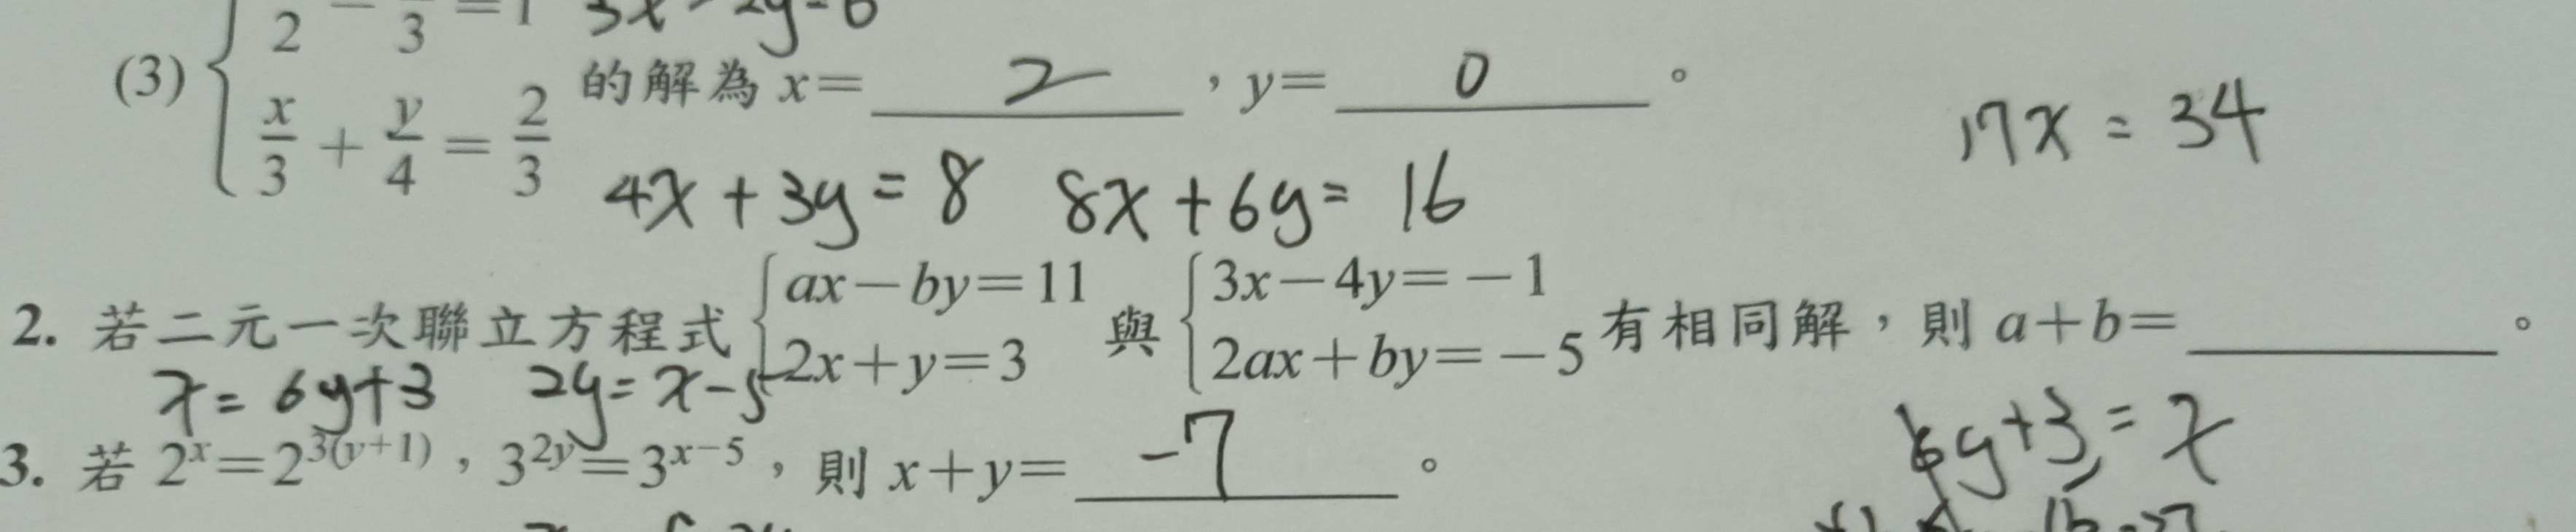 (3) { x/2 − y/3 = 1 3x − 2y = 6
x/3 + y/4 = 2/3 的解為 x= 2 ，y= 0 。
17x = 34
4x + 3y = 8 8x + 6y = 16
2. 若二元一次聯立方程式 { ax−by=11 2x+y=3 與 { 3x−4y=−1 2ax+by=−5 有相同解，則 a+b= 。
x = 6y+3 2y = x−5
6y+3 = x
3. 若 2^x=2^{3(y+1)}，3^{2y}=3^{x−5}，則 x+y= -7 。